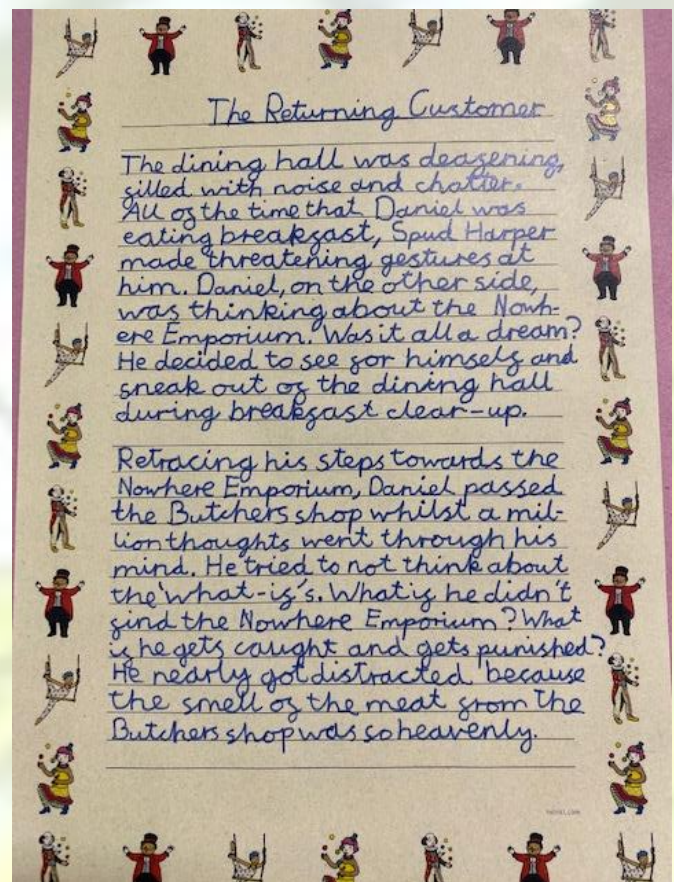 The Returning Customer
The dining hall was deafening,
filled with noise and chatter.
All of the time that Daniel was
eating breakfast, Spud Harper
made threatening gestures at
him. Daniel, on the other side,
was thinking about the Nowh-
ere Emporium. Was it all a dream?
He decided to see for himself and
sneak out of the dining hall
during breakfast clear-up.
Retracing his steps towards the
Nowhere Emporium, Daniel passed
the Butchers shop whilst a mil-
lion thoughts went through his
mind. He tried to not think about
the 'what-if's. What if he didn't
find the Nowhere Emporium? What
if he gets caught and gets punished?
He nearly got distracted because
the smell of the meat from the
Butchers shop was so heavenly.